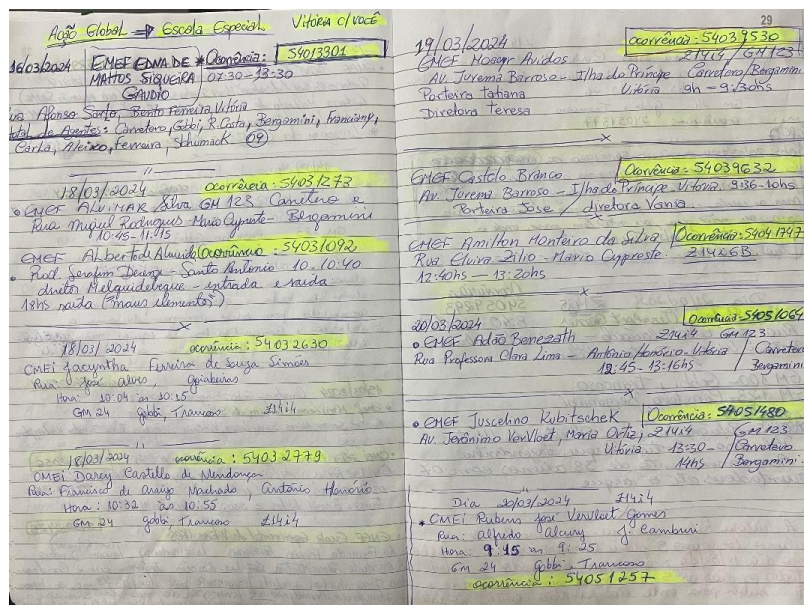 Ação Global ⇒ Escola Especial Vitória c/ você
16/03/2024 EMEF EDNA DE * Ocorrência: 54013301
MATTOS SIQUEIRA 07:30-13:30
GAUDIO
Afonso Sarlo, Bento Ferreira, Vitória
total de Agentes: Carretero, Gobbi, R. Costa, Bergamini, Franciany,
Carla, Aleixo, Ferreira, Schumack. 09
18/03/2024 ocorrência: 54031273
EMEF ALVIMAR Silva GM 123 Carretero e
Rua Miguel Rodrigues - Mario Cypreste - Bergamini
10:45-11:15
EMEF Alberto de Almeida Ocorrência - 54031092
Rod. Serafim Derenze - Santo Antônio 10-10:40
diretor Melquidebeque - entrada e saída
18hs saída ("maus elementos")
18/03/2024 ocorrência: 54032630
CMEI Jacyntha Ferreira de Souza Simões
Rua: José Alves, Goiabeiras
Hora: 10:04 às 10:15
GM 24 Gobbi, Trancoso 214i4
18/03/2024 ocorrência: 54032779
CMEI Darcy Castello de Mendonça
Rua: Francisco de Araujo Machado, Antônio Honório
Hora: 10:32 às 10:55
GM 24 gobbi Trancoso 214i4
29
19/03/2024 Ocorrência: 54039530
EMEF Moacyr Avidos 214i4 / GM 123
Av. Jurema Barroso - Ilha do Príncipe Carretero/Bergamini
Porteira Tatiana Vitória 9h - 9:30hs
Diretora Teresa
EMEF Castelo Branco Ocorrência: 54039632
Av. Jurema Barroso - Ilha do Príncipe Vitória. 9:36-10hs
Porteiro Jose / diretora Vania
EMEF Amilton Monteiro da Silva Ocorrência: 54041747
Rua Elvira Zilio - Mario Cypreste. 214i6B.
12:40hs — 13:20hs
20/03/2024 Ocorrência: 54051064
EMEF Adão Benezath 214i4 GM 123
Rua Professora Clara Lima - Antônio Honório - Vitória / Carretero
12:45 - 13:16hs Bergamini
EMEF Juscelino Kubitschek Ocorrência: 54051480
Av. Jerônimo Vervloet, Maria Ortiz, 214i4 / GM 123
Vitória 13:30 - Carretero
14hs / Bergamini
Dia 20/03/2024 214i4
* CMEI Rubens José Vervloet Gomes
Rua: alfredo Alcury J. Camburi
Hora: 9:15 às 9:25
GM 24 Gobbi, Trancoso
ocorrência: 54051257